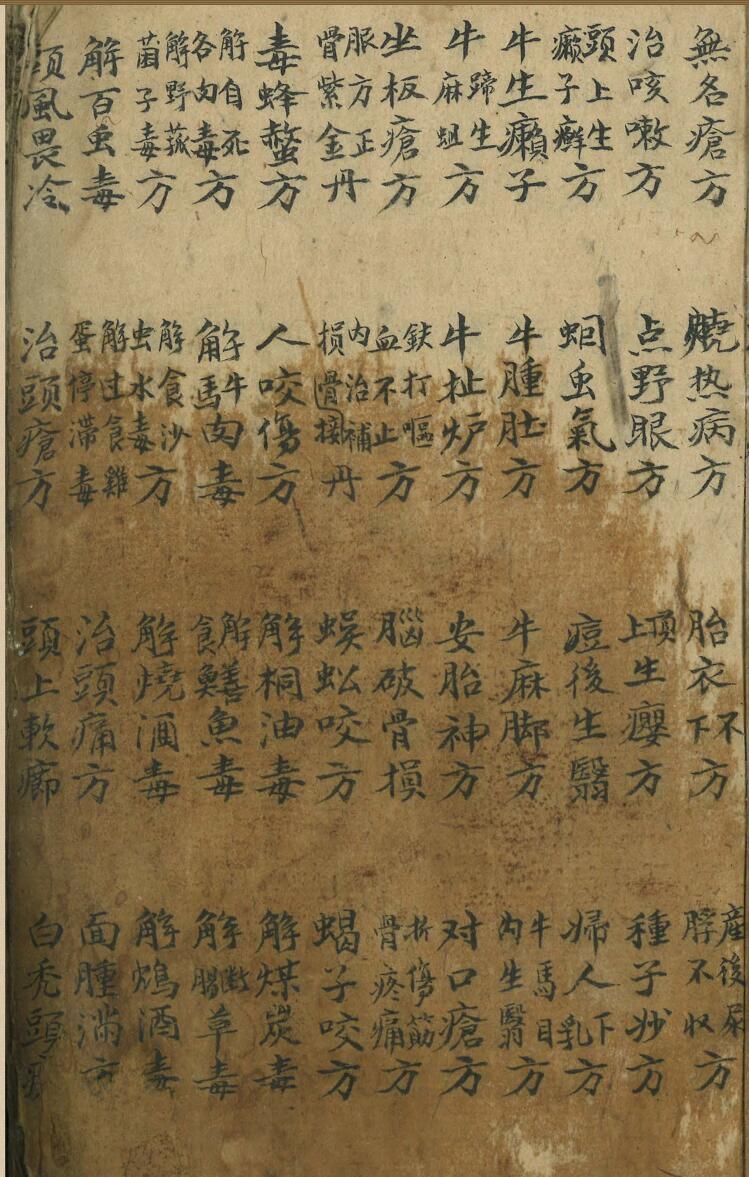 無名瘡方 燒热病方 胎衣不下方 產後尿脬不收方
治咳嗽方 点野眼方 頂上生癭方 種子妙方
頭上生癩子癬方 蛔虫氣方 痘後生翳 婦人下乳方
牛生癩子 牛腫肚方 牛麻脚方 牛馬目內生翳方
牛蹄生麻蛆方 牛扯炉方 安胎神方 对口瘡方
坐板瘡方 鉄打嘔血不止方 腦破骨損 折傷筋骨疼痛方
服方正骨紫金丹 內治補損骨接丹 蜈蚣咬方 蝎子咬方
毒蜂螫方 人咬傷方 解桐油毒 解煤炭毒
解自死各肉毒方 解牛馬肉毒 解食鱔魚毒 解斷腸草毒
解野菰菌子毒方 解食沙虫水毒方 解燒酒毒 解鴆酒毒
解百虫毒 解过食雞蛋停滯毒 治頭痛方 面腫滿方
風畏冷 治頭瘡方 頭上軟癤 白禿頭